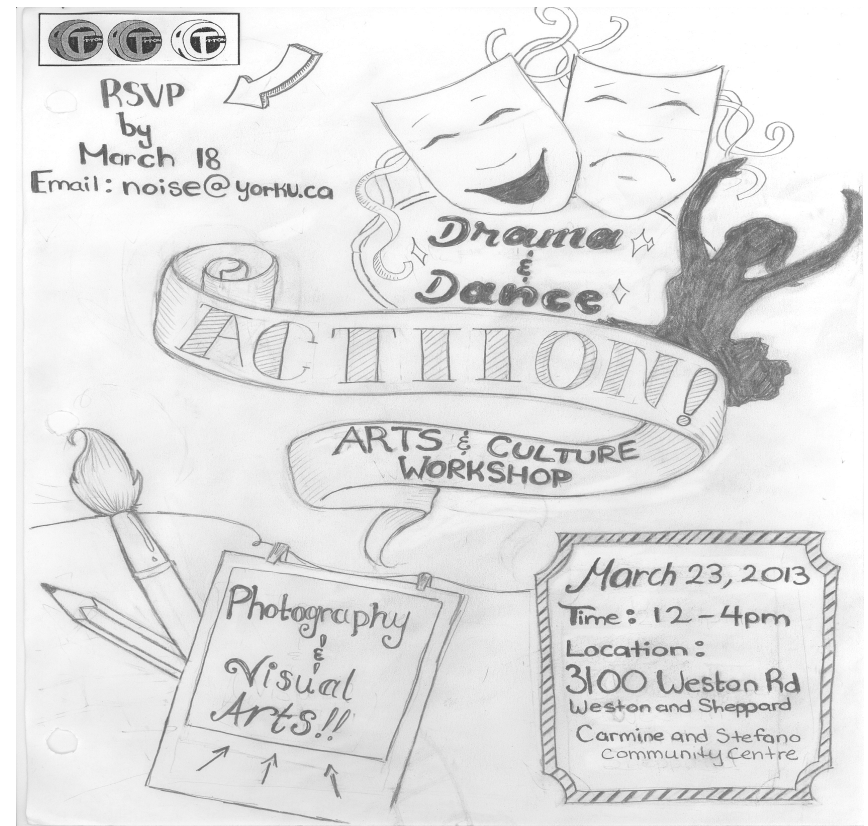 RSVP
by
March 18
Email: noise@yorku.ca
Drama
&
Dance
ACTIION!
ARTS & CULTURE
WORKSHOP
Photography
&
Visual
Arts!!
March 23, 2013
Time: 12-4pm
Location:
3100 Weston Rd
Weston and Sheppard
Carmine and Stefano
Community Centre